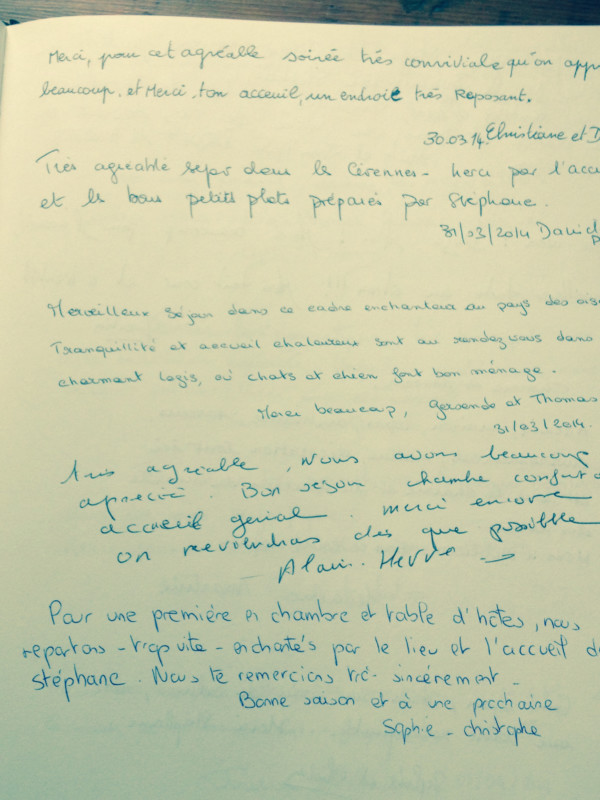 Merci, pour cet agréable soirée très conviviale qu'on appr
beaucoup. et Merci. ton acceuil, un endroit très Reposant.
30.03.14. Christiane et D
Très agréable sejour dans les Cévennes - Merci par l'accu
et les bons petits plats préparés par Stéphane.
31/03/2014 David
Merveilleux séjour dans ce cadre enchanteur au pays des ois
Tranquillité et accueil chaleureux sont au rendez vous dans
charmant logis, où chats et chien font bon ménage.
Merci beaucoup, Gersende et Thomas
31/03/2014.
très agréable, Nous avons beaucoup
aprecié. Bon sejour chambre confort
accueil genial. merci encore
on reviendras des que possible
Alain. Herve
Pour une premiére en chambre et table d'hôtes, nous
repartons - trop vite - enchantés par le lieu et l'accueil d
Stéphane. Nous te remercions très sincérement.
Bonne saison et à une prochaine
Sophie - christophe